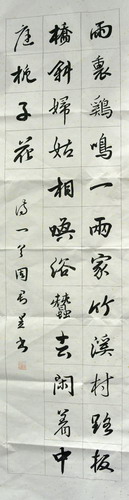 雨裏鷄鳴一兩家竹溪村路板
橋斜婦姑相喚浴蠶去閑著中
庭栀子花
詩一首周